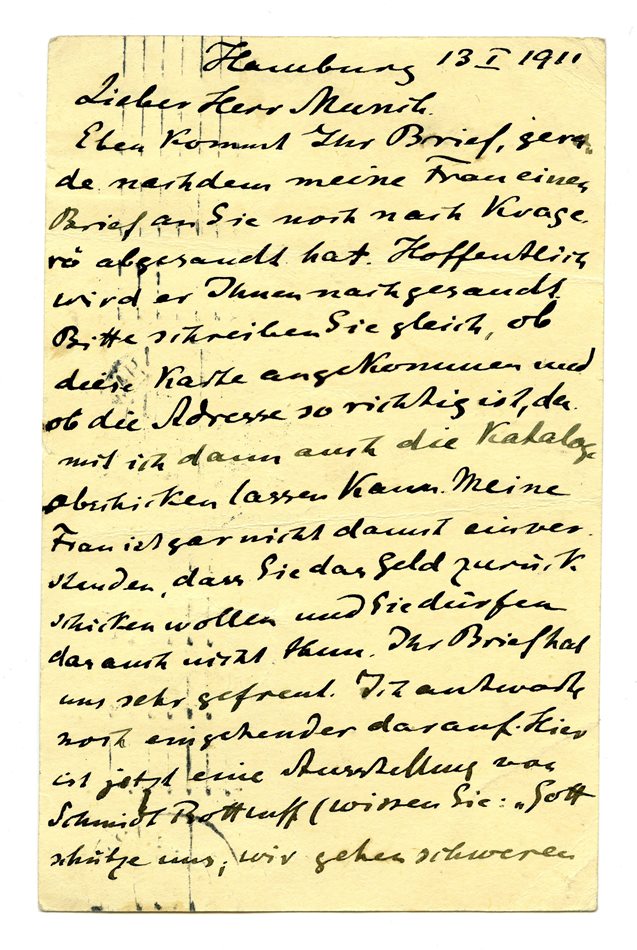 Hamburg 13 I 1911
Lieber Herr Munch.
Eben kommt Ihr Brief, gera-
de nachdem meine Frau einen
Brief an Sie noch nach Krage-
rö abgesandt hat. Hoffentlich
wird er Ihnen nachgesandt.
Bitte schreiben Sie gleich, ob
diese Karte angekommen und
ob die Adresse so richtig ist, da-
mit ich dann auch die Kataloge
abschicken lassen kann. Meine
Frau ist gar nicht damit einver-
standen, dass Sie das Geld zurück
schicken wollen und Sie dürfen
das auch nicht thun. Ihr Brief hat
uns sehr gefreut. Ich antworte
noch eingehender darauf. Hier
ist jetzt eine Ausstellung von
Schmidt Rottluff (wissen Sie: „Gott
schütze uns, wir gehen schweren